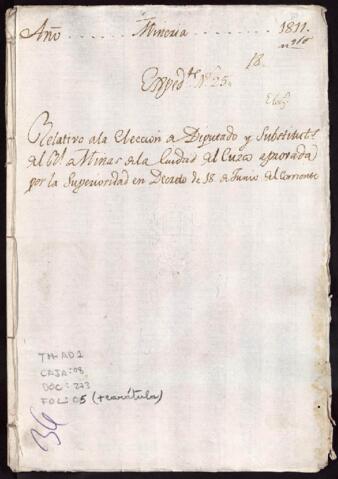 Año . . . . . . . Mineria . . . . . . . 1811.
18.
Expedte Nº 25.
Relativo ala Eleccion a Diputado y Substitutos
del Rl a Minas dela Cuidad del Cuzco aprovada
por la Superioridad en Decreto de 18 de Junio del Corriente
TM-AD1
CAJA:08
DOC: 273
FOL: 05 (+carátula)
36